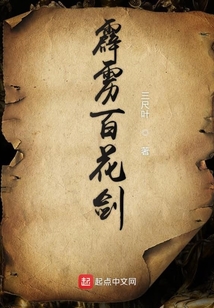 霹雳百花剑
三尺叶 著
起点 起点中文网